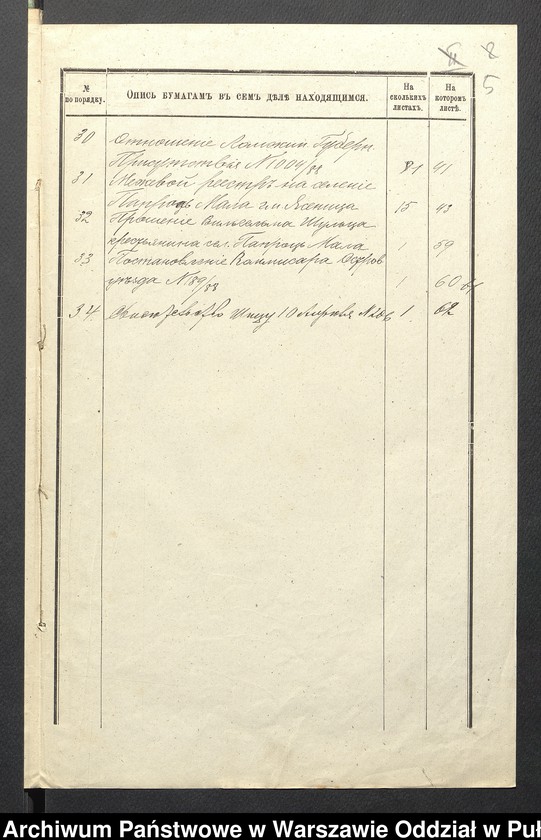 8
5
№ по порядку.
Опись бумагамъ въ семъ дѣлѣ находящимся.
На сколькихъ листахъ.
На которомъ листѣ.
30 Отношеніе Ломжин Губерн.
Присутствія N 1004/88 1 41
31 Межевой реестръ на селеніе
Папроць Мала гм Ясеница 15 43
32 Прошеніе Вильгельма Шульца
крестьянина сел. Папроць Мала 1 59
33 Постановленіе Коммисара Остров
уѣзда N 89/88 1 60
34 Свидетельство 10 Апрѣля N 286 1 62
Archiwum Państwowe w Warszawie Oddział w Puł